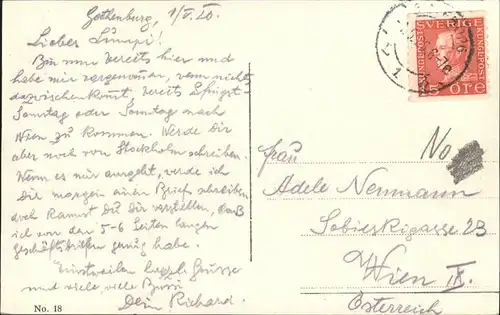 Gothenburg, 1/V. 20.
Lieber Limpi!
Bin nun bereits hier und
habe mir vorgenommen, wenn nichts
dazwischenkommt, bereits Pfingst-
Sonntag oder Sonntag nach
Wien zu kommen. Werde Dir
aber noch von Stockholm schreiben.
Wenn es mir ausgeht, werde ich
Dir morgen einen Brief schreiben
doch kannst Du Dir vorstellen, daß
ich von den 5-6 Seiten langen
Geschäftsbriefen genug habe.
Einstweilen herzl. Grüsse
und viele, viele Bussi
Dein Richard.
No. 18
SVERIGE
15 ÖRE
No
Frau
Adele Neumann
Sobieskigasse 23
Wien IX.
Österreich